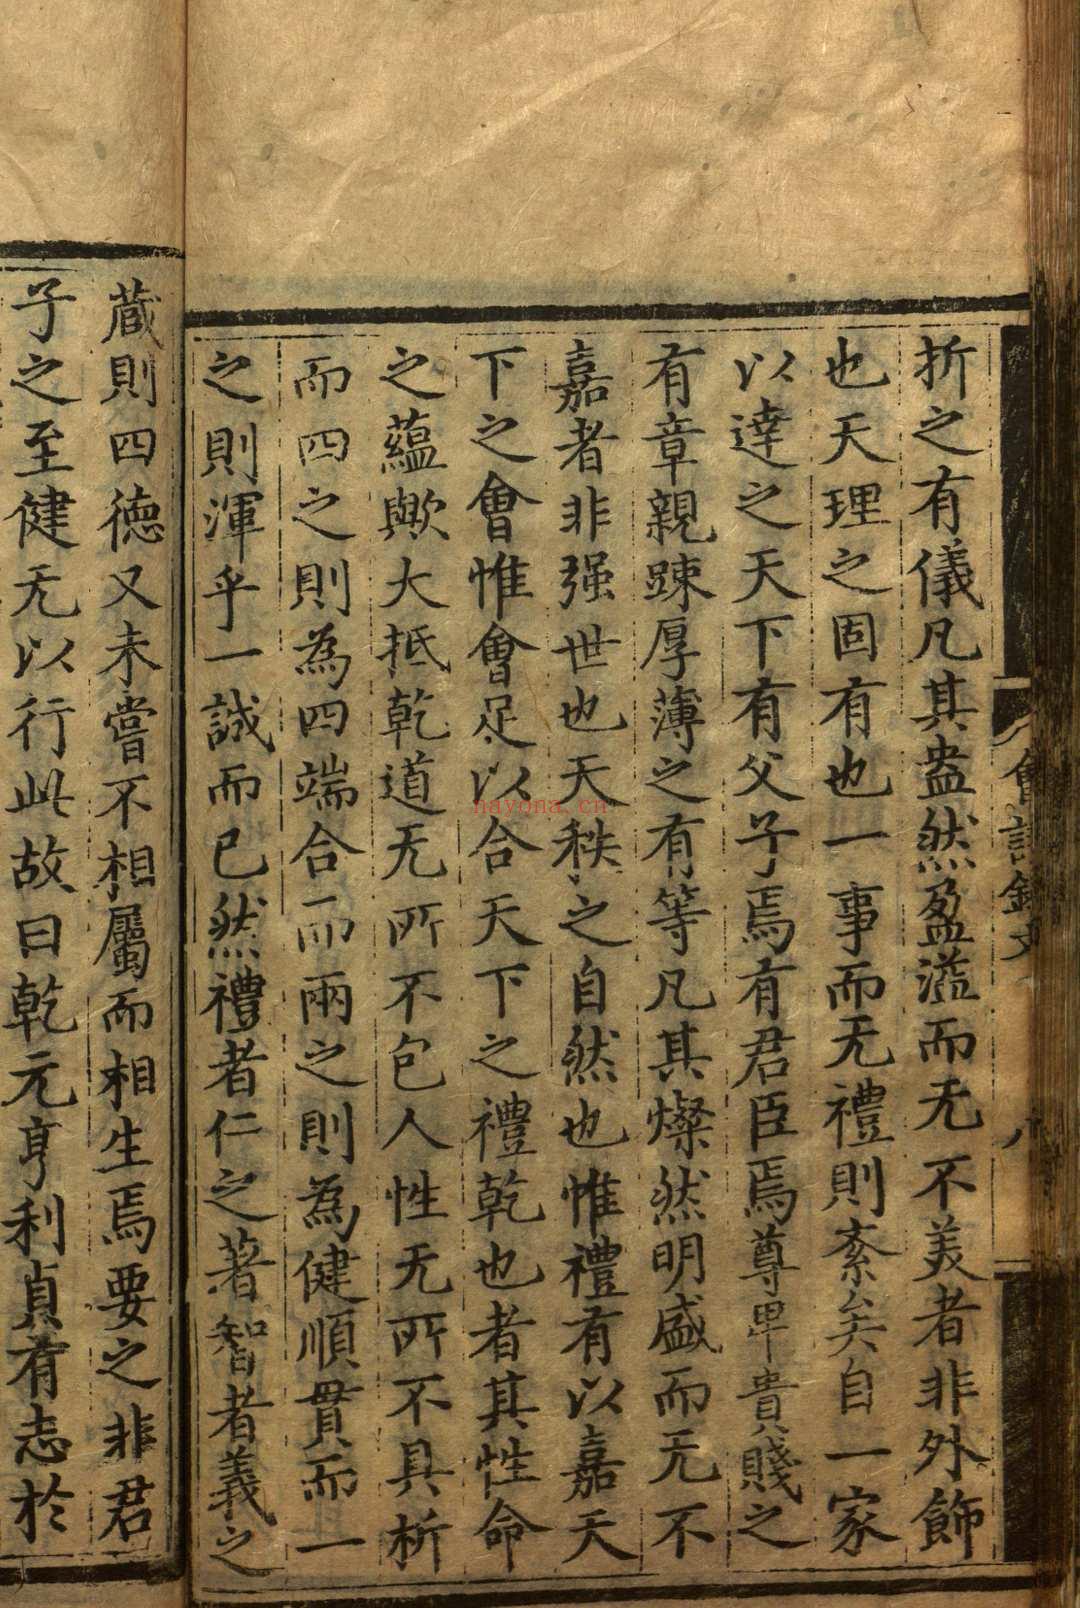 折之有儀凡其盎然盈溢而无不美者非外飾
也天理之固有也一事而无禮則紊矣自一家
以達之天下有父子焉有君臣焉尊卑貴賤之
有章親踈厚薄之有等凡其燦然明盛而无不
嘉者非强世也天秩之自然也惟禮有以嘉天
下之會惟會足以合天下之禮乾也者其性命
之蘊歟大抵乾道无所不包人性无所不具析
而四之則為四端合而兩之則為健順貫而一
之則渾乎一誠而已然禮者仁之著智者義之
蔵則四德又未嘗不相屬而相生焉要之非君
子之至健无以行此故曰乾元亨利貞有志於
會試錄文
八
nayona.cn